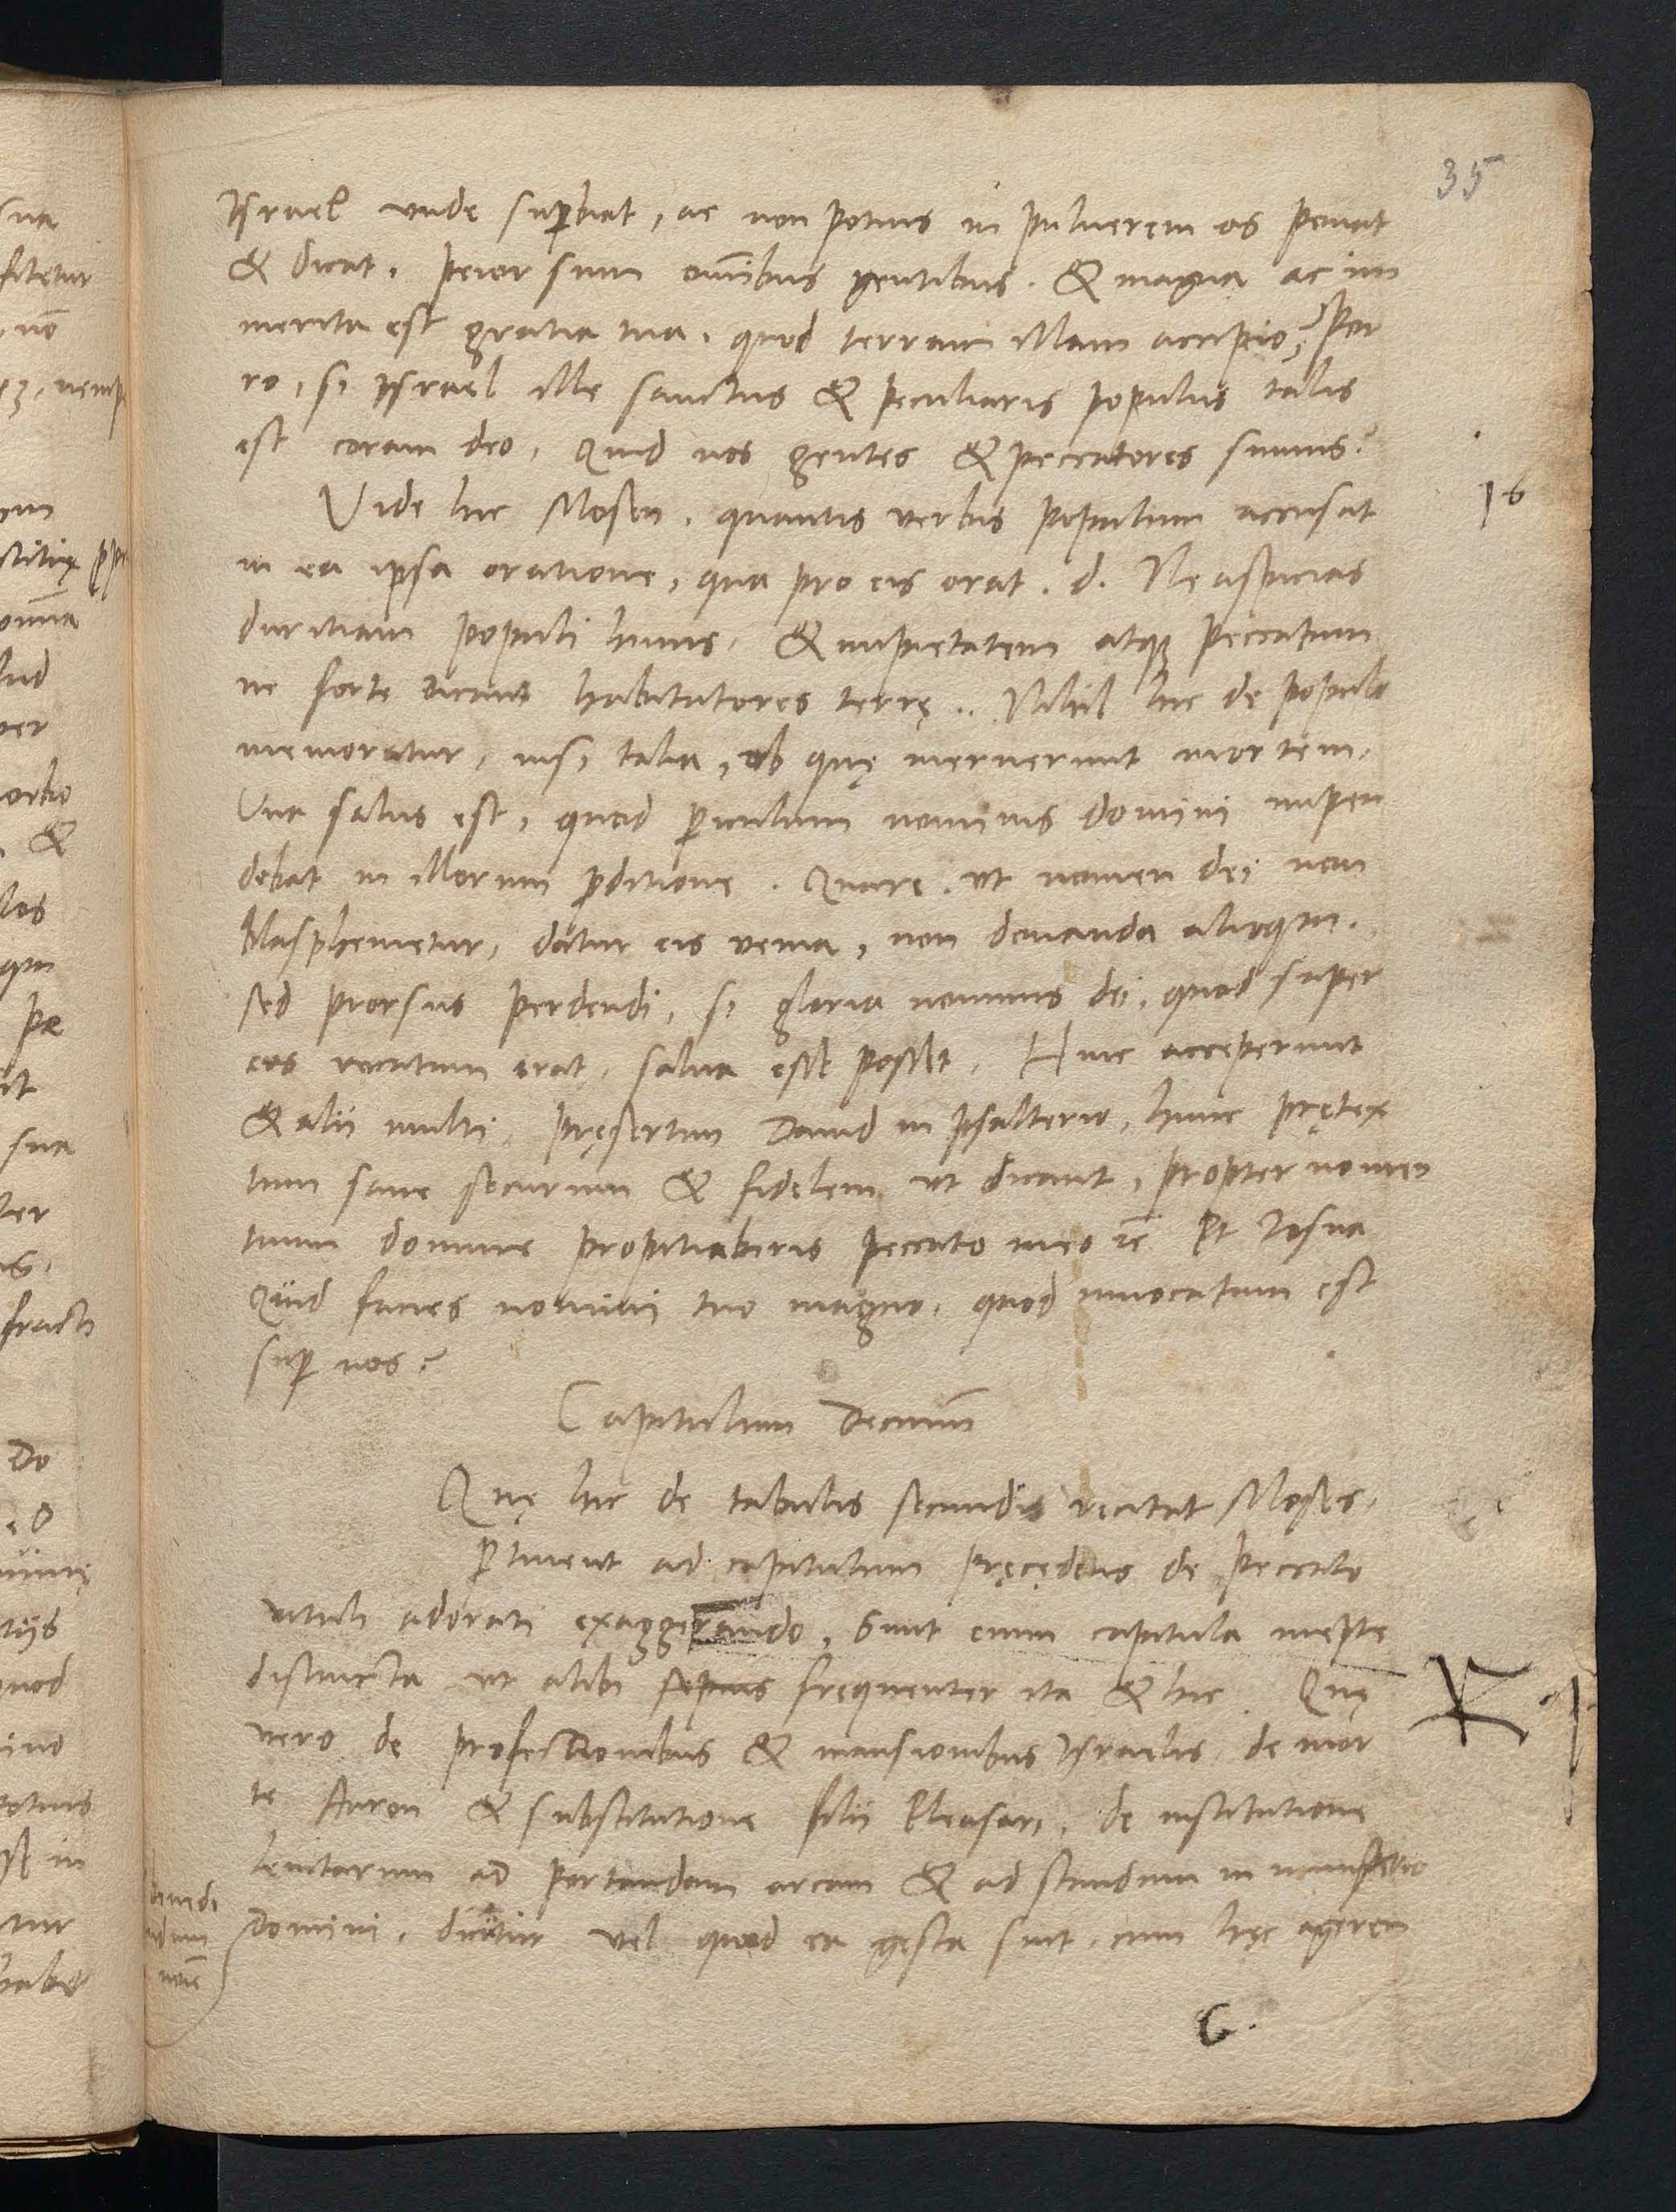 35
Israel vnde suꝑbiat, ac non potius in puluerem os ponat
& dicat. Peior sum om̄ibus gentibus. & magna ac im
merita est gratia tua, quod terram illam accipio? Por
ro, si Israel ille sanctus & peculiaris populus talis
est coram deo, Quid nos gentes & peccatores sumus?
Vide hic Mosen, quantis verbis populum accusat
16
in ea ipsa oratione, qua pro eis orat. d. Ne aspicias
duritiam populi huius, & impietatem atqꝫ peccatum
ne forte dicant habitatores terrę.. Nihil hic de populo
memoratur, nisi talia, ob quę meruerunt mortem.
Una salus est, quod ꝑiculum nominis domini impen
debat in illorum ꝑditione. Quare. vt nomen dei non
blasphemetur, datur eis venia, non donanda alioqui.
sed prorsus perdendi, si gloria nominis dei, quod super
eos vocatum erat, salua esse posset. Hinc acceperunt
& alii multi, pręsertim Dauid in psalterio, hunc prętex
tum sane securum & fidelem vt dicant, propter nomen
tuum domine propitiaberis peccato meo ꝛc̄ Et Iosua
Quid facies nomini tuo magno, quod inuocatum est
suꝑ nos?
Capitulum Decimū
Quę hic de tabulis secundis recitat Moses,
ꝑtinent ad capitulum pręcędens de peccato
vituli adorati exaggerando, Sunt enim capitula inepte
distincta vt alibi sepius frequenter ita & hic. Quę
vero de profectionibus & mansionibus Israelis, de mor
te Aaron & substitutione filii Eleasari, de institutione
leuitarum ad portandam arcam & ad standum in ministerio
Domini, dicūtur vel quod ea gesta sint, cum hęc ageren
G.